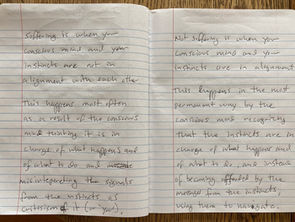 Suffering is when your
conscious mind and your
instincts are not in
alignment with each other
This happens most often
as a result of the conscious
mind thinking it is in
charge of what happens and
of what to do and
misinterpreting the signals
from the instincts as
criticism of it (or you),
Not suffering is when your
conscious mind and your
instincts are in alignment
This happens in the most
permanent way by the
conscious mind recognizing
that the instincts are in
charge of what happens and
of what to do, and instead
of becoming affected by the
message from the instincts,
using them to navigate.